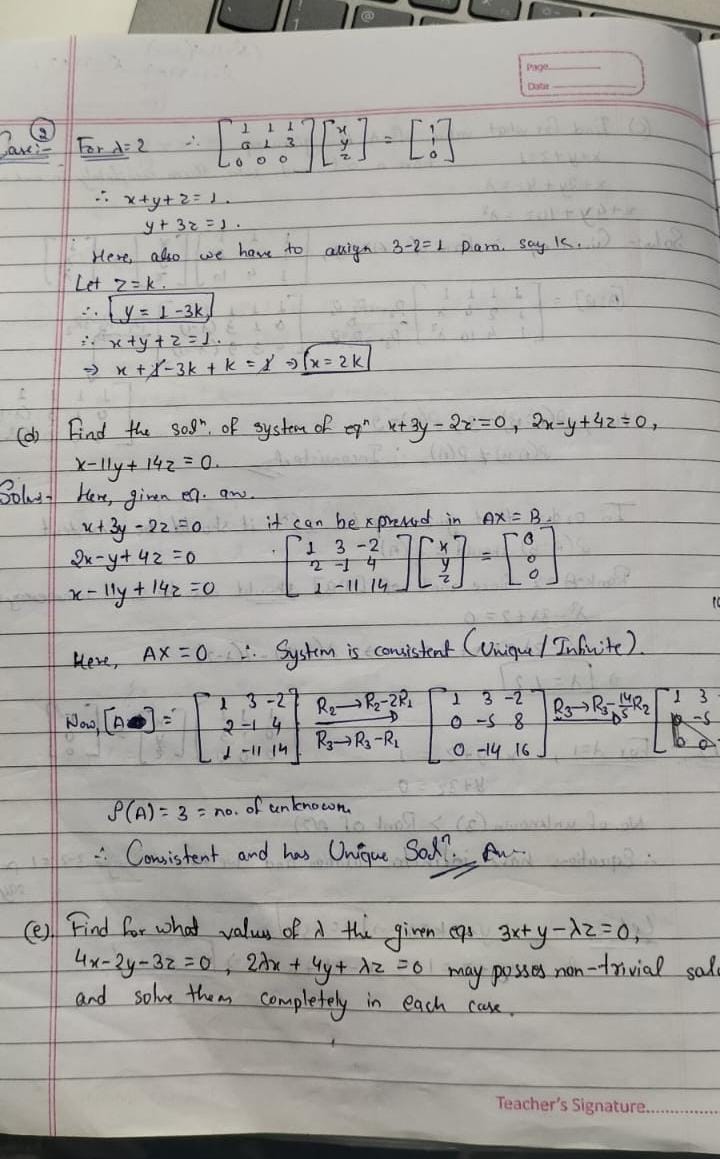 Page
Date
Case:- ② For λ=2 ∴ [1 1 1; 0 1 3; 0 0 0] [x; y; z] = [1; 1; 0]
∴ x+y+z=1.
y+3z=1.
Here, also we have to assign 3-2=1 Para. say k.
Let z=k.
∴ y=1-3k
∴ x+y+z=1.
⇒ x+1-3k+k=1 ⇒ x=2k
(d) Find the solⁿ. of system of eqⁿ x+3y-2z=0, 2x-y+4z=0,
x-11y+14z=0.
Solu:- Here, given eq. are.
x+3y-2z=0 it can be xpressed in AX=B.
2x-y+4z=0 [1 3 -2; 2 -1 4; 1 -11 14] [x; y; z] = [0; 0; 0]
x-11y+14z=0
Here, AX=0 ∴ System is consistent (Unique/Infinite).
Now, [A] = [1 3 -2; 2 -1 4; 1 -11 14] R₂→R₂-2R₁ R₃→R₃-R₁ [1 3 -2; 0 -5 8; 0 -14 16] R₃→R₃-14/5R₂ [1 3; 0 -5; 0 0
ρ(A)=3= no. of unknown.
∴ Consistent and has Unique Solⁿ. Ans.
(e). Find for what values of λ the given eqs 3x+y-λz=0,
4x-2y-3z=0, 2λx+4y+λz=0 may posses non-trivial
and solve them completely in each case.
Teacher's Signature